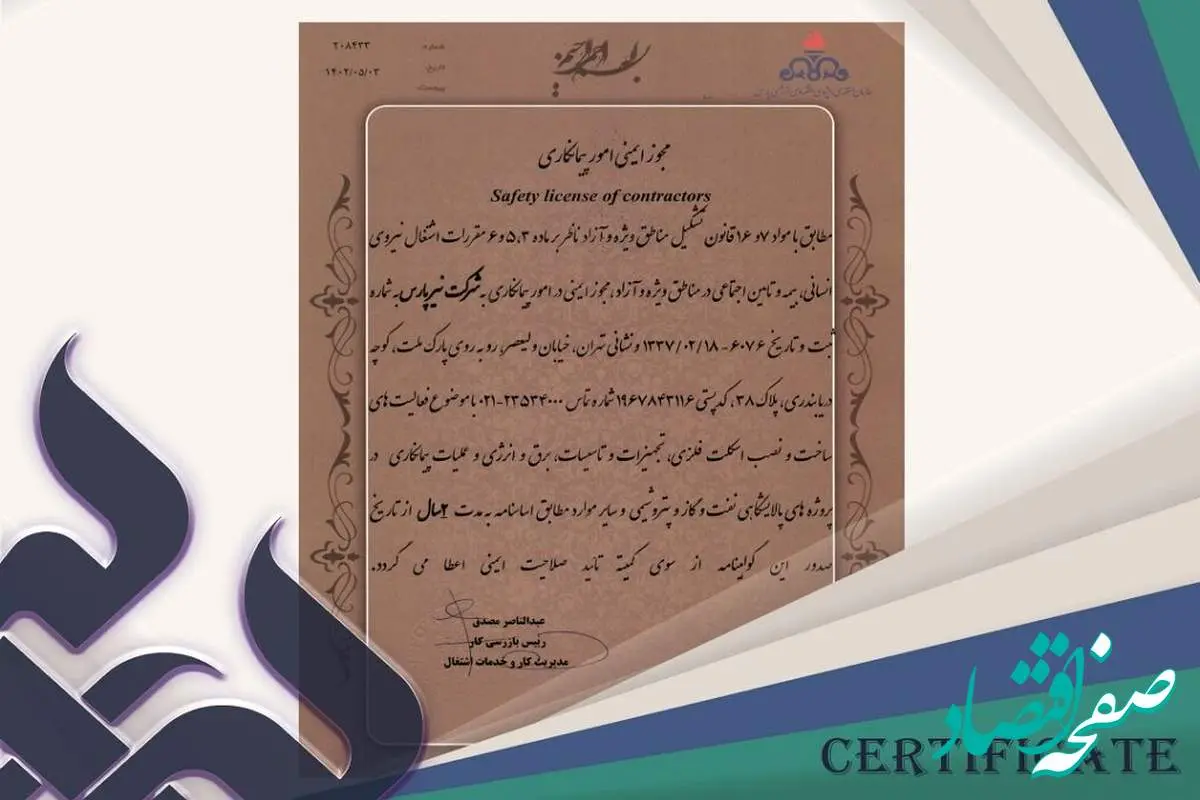 ۲۰۸۴۳۳
شماره:
۱۴۰۲/۰۵/۰۳
تاریخ:
پیوست:
بسم الله الرحمن الرحیم
مجوز ایمنی امور پیمانکاری
Safety license of contractors
مطابق با مواد ۷ و ۱۶ قانون تشکیل مناطق ویژه و آزاد ناظر بر ماده ۵،۳ و ۶ مقررات اشتغال نیروی
انسانی، بیمه و تامین اجتماعی در مناطق ویژه و آزاد، مجوز ایمنی در امور پیمانکاری به شرکت نیرپارس به شماره
ثبت و تاریخ ۶۰۷۶ - ۱۳۳۷/۰۲/۱۸ و نشانی تهران، خیابان ولیعصر، رو به روی پارک ملت، کوچه
دریابندری، پلاک ۳۸، کدپستی ۱۹۶۷۸۴۳۱۱۶ شماره تماس ۲۳۵۳۴۰۰۰-۰۲۱ با موضوع فعالیت های
ساخت و نصب اسکلت فلزی، تجهیزات و تاسیسات، برق و انرژی و عملیات پیمانکاری در
پروژه های پالایشگاهی نفت و گاز و پتروشیمی و سایر موارد مطابق اساسنامه به مدت ۲سال از تاریخ
صدور این گواهینامه از سوی کمیته تائید صلاحیت ایمنی اعطا می گردد.
عبدالناصر مصدق
رییس بازرسی کار
مدیریت کار و خدمات اشتغال
صفحه اقتصاد
CERTIFICATE